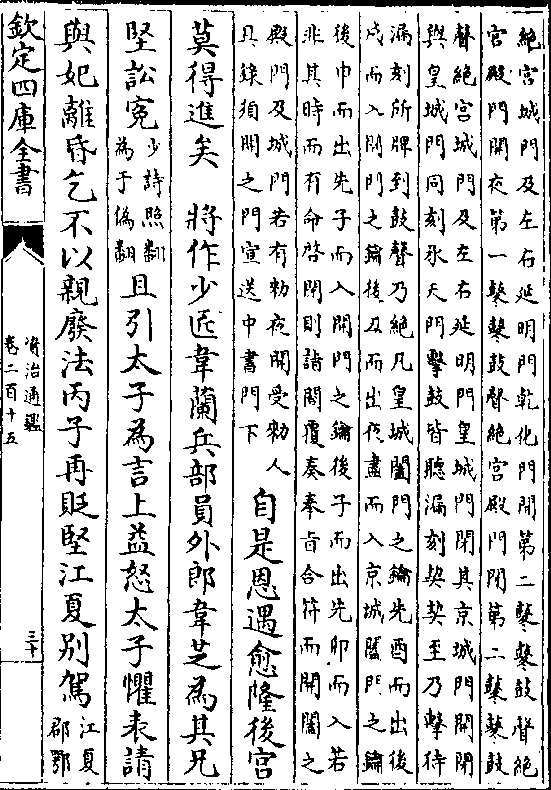 絶宫城門及左右延明門乾化門開第二鼕鼕鼓聲絶
宫殿門開夜第一鼕鼕鼓聲絶宫殿門閉第二鼕鼕鼓
聲絶宫城門及左右延明門皇城門閉其京城門開閉
與皇城門同刻承天門擊鼓皆聽漏刻契契至乃擊待
漏刻所牌到鼓聲乃絶凡皇城闔門之鑰先酉而出後
戌而入開門之鑰後丑而出夜盡而入京城闔門之鑰
後申而出先子而入開門之鑰後子而出先卯而入若
非其時而有命啓閉則詣閤覆奏奉旨合符而開闔之
殿門及城門若有勅夜開受勅人
具錄須開之門宣送中書門下
自是恩遇愈隆後宫
莫得進矣　將作少匠韋蘭兵部員外郎韋芝為其兄
堅訟寃
少詩照翻
為于偽翻
且引太子為言上益怒太子懼表請
與妃離昏乞不以親廢法丙子再貶堅江夏别駕
江夏
郡鄂
欽定四庫全書
資治通鑑
卷二百十五
三十